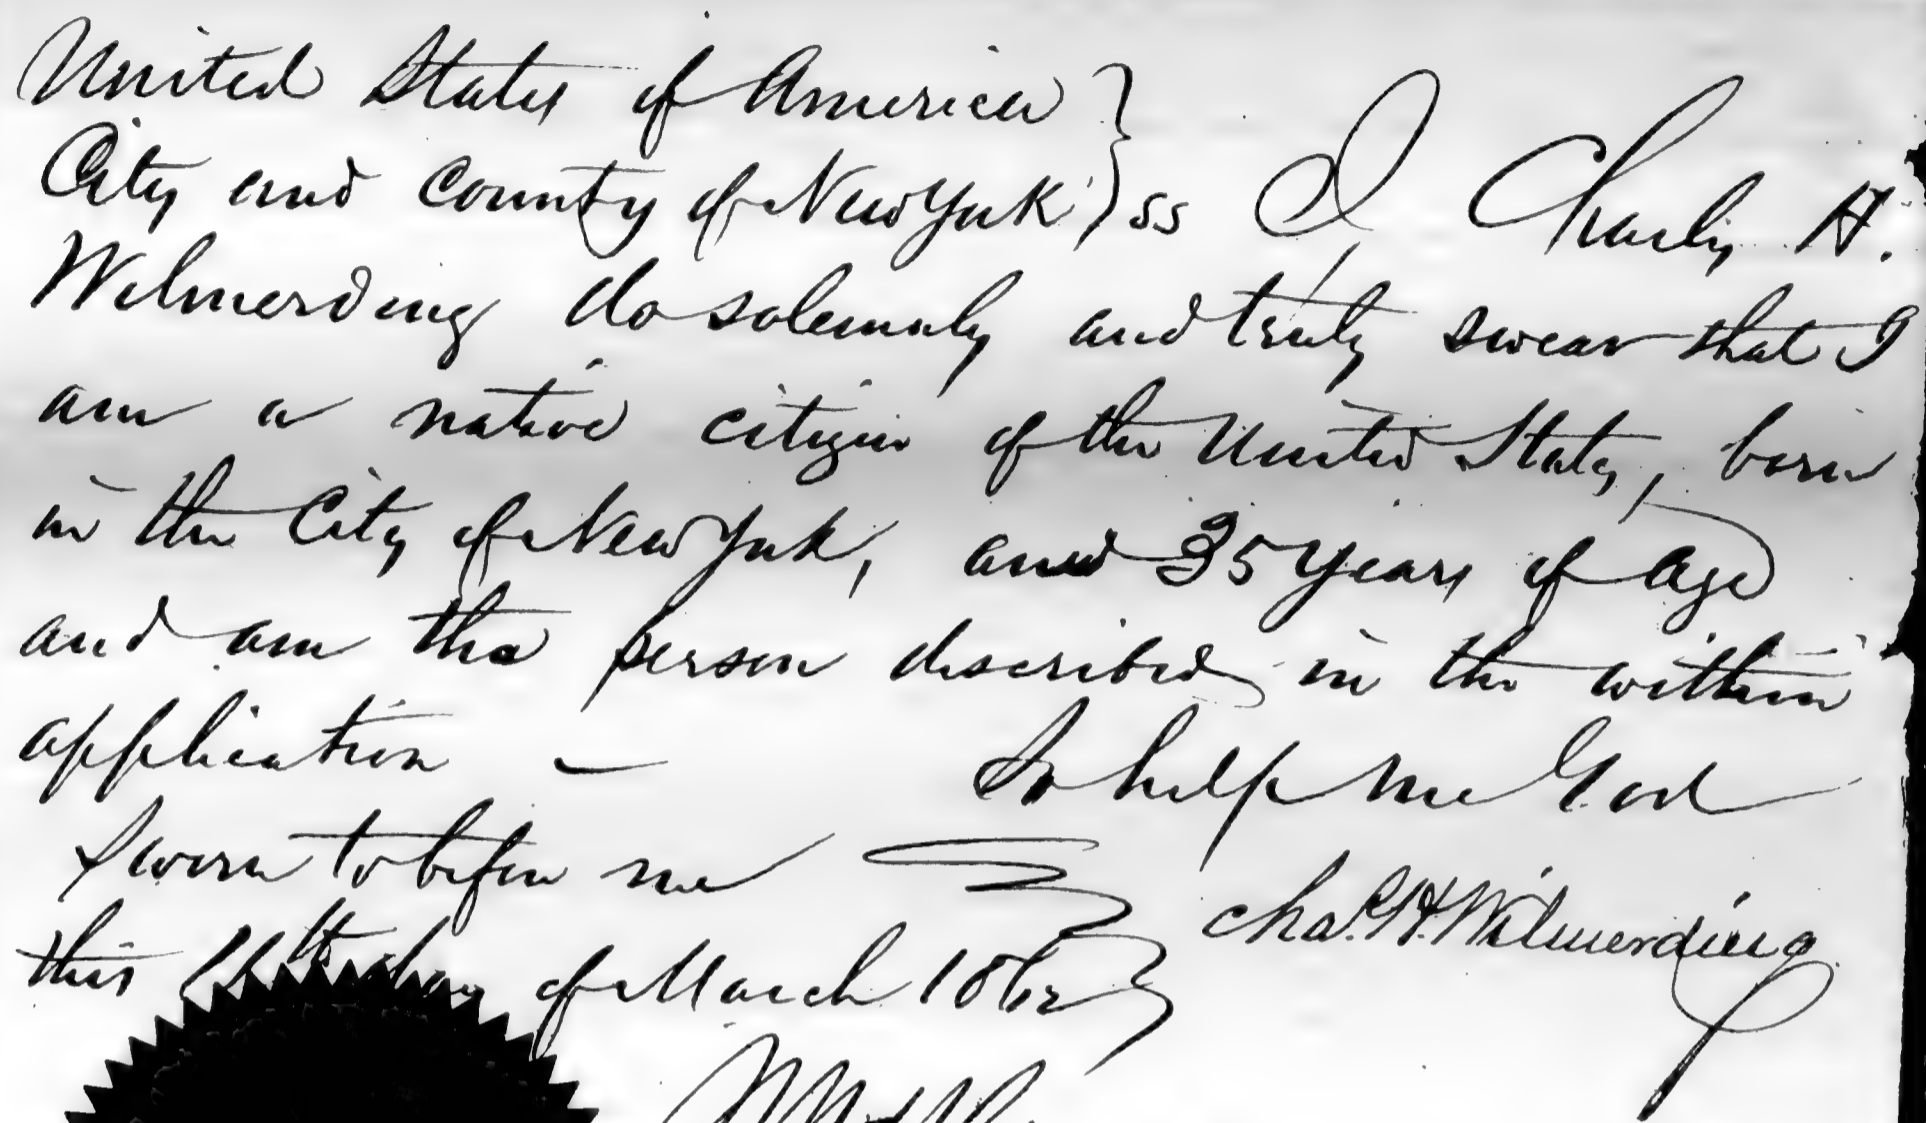 United States of America }
City and County of New York } ss I Charles H.
Wilmerding do solemnly and truly swear that I
am a native citizen of the United States, born
in the City of New York, and 35 years of age
and am the person described in the within
application — So help me God
Sworn to before me
Chas. H. Wilmerding
this day of March 1862